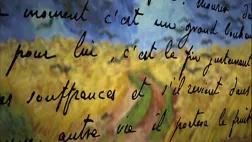 moment c'est un grand
pour lui, c'est le fin justement
souffrances et s'il revient dans
autre vie il portera le fruit